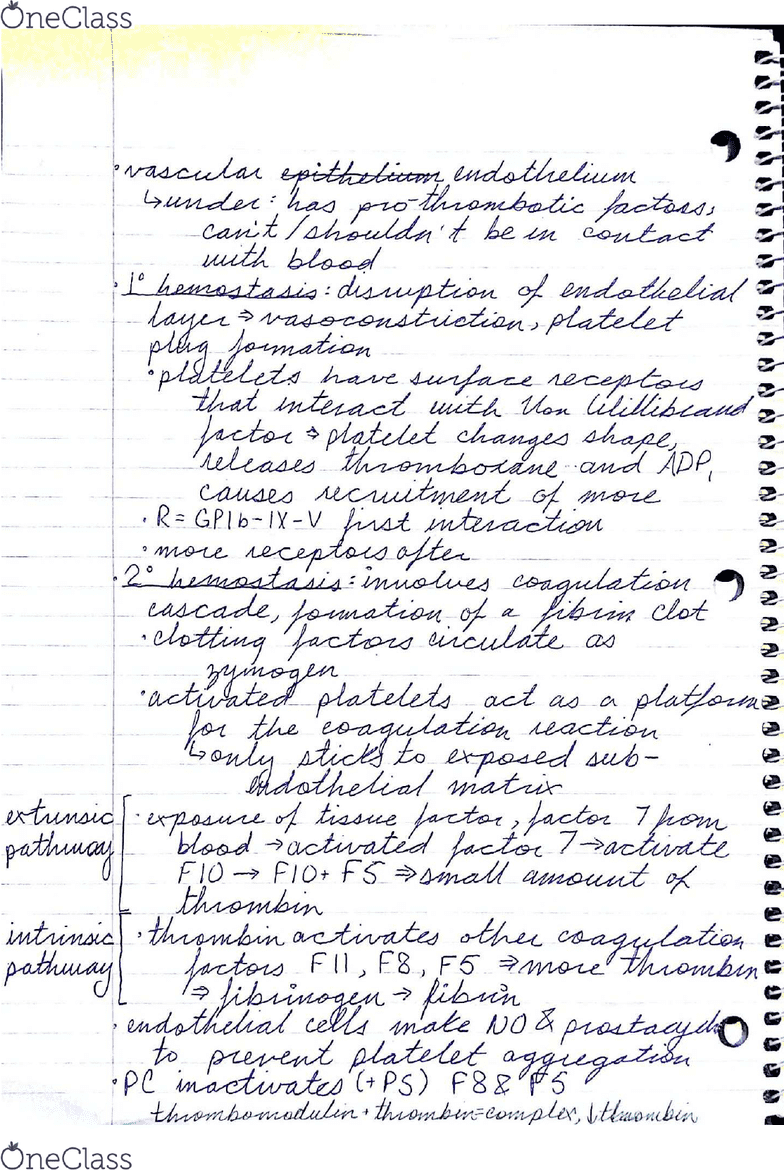 OneClass
• vascular epithelium endothelium
↳under: has pro-thrombotic factors,
can't/shouldn't be in contact
with blood
• 1° hemostasis: disruption of endothelial
layer ⇒ vasoconstriction, platelet
plug formation
• platelets have surface receptors
that interact with Von Willibrand
factor ⇒ platelet changes shape,
releases thromboxane and ADP,
causes recruitment of more
• R = GPIb-IX-V first interaction
• more receptors after
• 2° hemostasis: involves coagulation
cascade, formation of a fibrin clot
• clotting factors circulate as
zymogen
• activated platelets act as a platform
for the coagulation reaction
↳only sticks to exposed sub-
endothelial matrix
extrinsic • exposure of tissue factor, factor 7 from
pathway blood → activated factor 7 → activate
F10 → F10 + F5 ⇒ small amount of
thrombin
intrinsic • thrombin activates other coagulation
pathway factors F11, F8, F5 ⇒ more thrombin
⇒ fibrinogen → fibrin
• endothelial cells make NO &
to prevent platelet aggregation
• PC inactivates (+PS) F8 & F5
thrombomodulin + thrombin = complex, ↓thrombin
OneClass